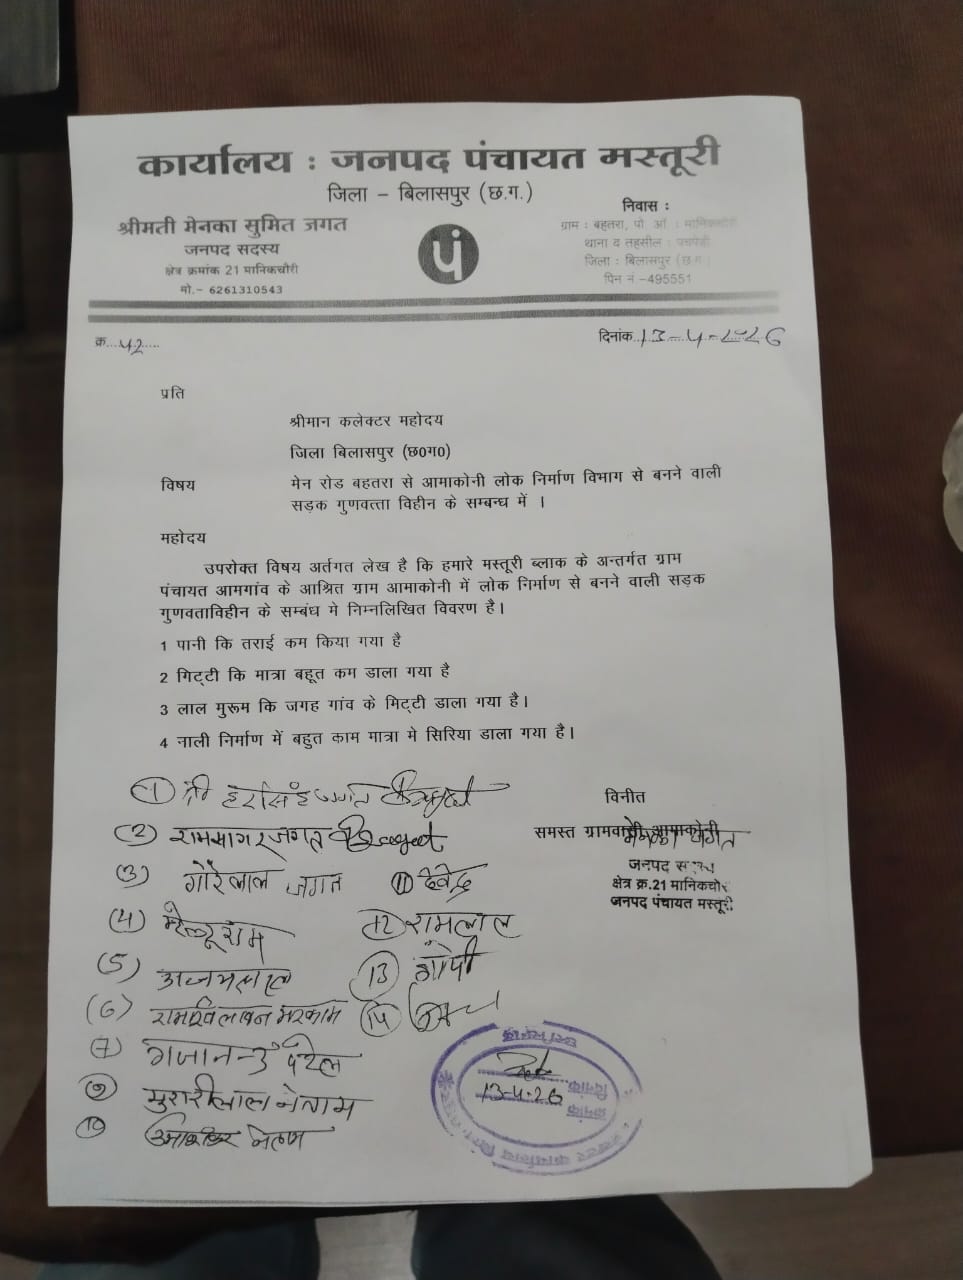 कार्यालय : जनपद पंचायत मस्तूरी
जिला – बिलासपुर (छ.ग.)
श्रीमती मेनका सुमित जगत
जनपद सदस्य
क्षेत्र क्रमांक 21 मानिकचौरी
मो.- 6261310543
पं
निवास :
ग्राम : बहतरा, पो. ऑ. : मानिकचौरी
थाना व तहसील : पचपेडी
जिला : बिलासपुर (छ.ग.)
पिन नं.-495551
क्र...42.....
दिनांक..13-4-2026
प्रति
श्रीमान कलेक्टर महोदय
जिला बिलासपुर (छ0ग0)
विषय मेन रोड बहतरा से आमाकोनी लोक निर्माण विभाग से बनने वाली
सड़क गुणवत्ता विहीन के सम्बन्ध में ।
महोदय
उपरोक्त विषय अर्तगत लेख है कि हमारे मस्तूरी ब्लाक के अन्तर्गत ग्राम
पंचायत आमगांव के आश्रित ग्राम आमाकोनी में लोक निर्माण से बनने वाली सड़क
गुणवताविहीन के सम्बंध मे निम्नलिखित विवरण है।
1 पानी कि तराई कम किया गया है
2 गिट्टी कि मात्रा बहूत कम डाला गया है
3 लाल मुरूम कि जगह गांव के मिट्टी डाला गया है।
4 नाली निर्माण में बहुत काम मात्रा मे सिरिया डाला गया है।
विनीत
समस्त ग्रामवासी आमाकोनी
मेनका जगत
जनपद सदस्य
क्षेत्र क्र.21 मानिकचौरी
जनपद पंचायत मस्तूरी
(1) श्री हरसिंह जगत
(2) रामसागर जगत
(3) गोरेलाल जगत
(11) देवेन्द्र
(4)
12 रामलाल
(5)
(13) गोपी
(6) रामखिलावन मरकाम
(14)
(7) गजानन्द पटेल
(9) मुरारीलाल नेताम
(10)
13-4-26
क्रमांक
दिनांक